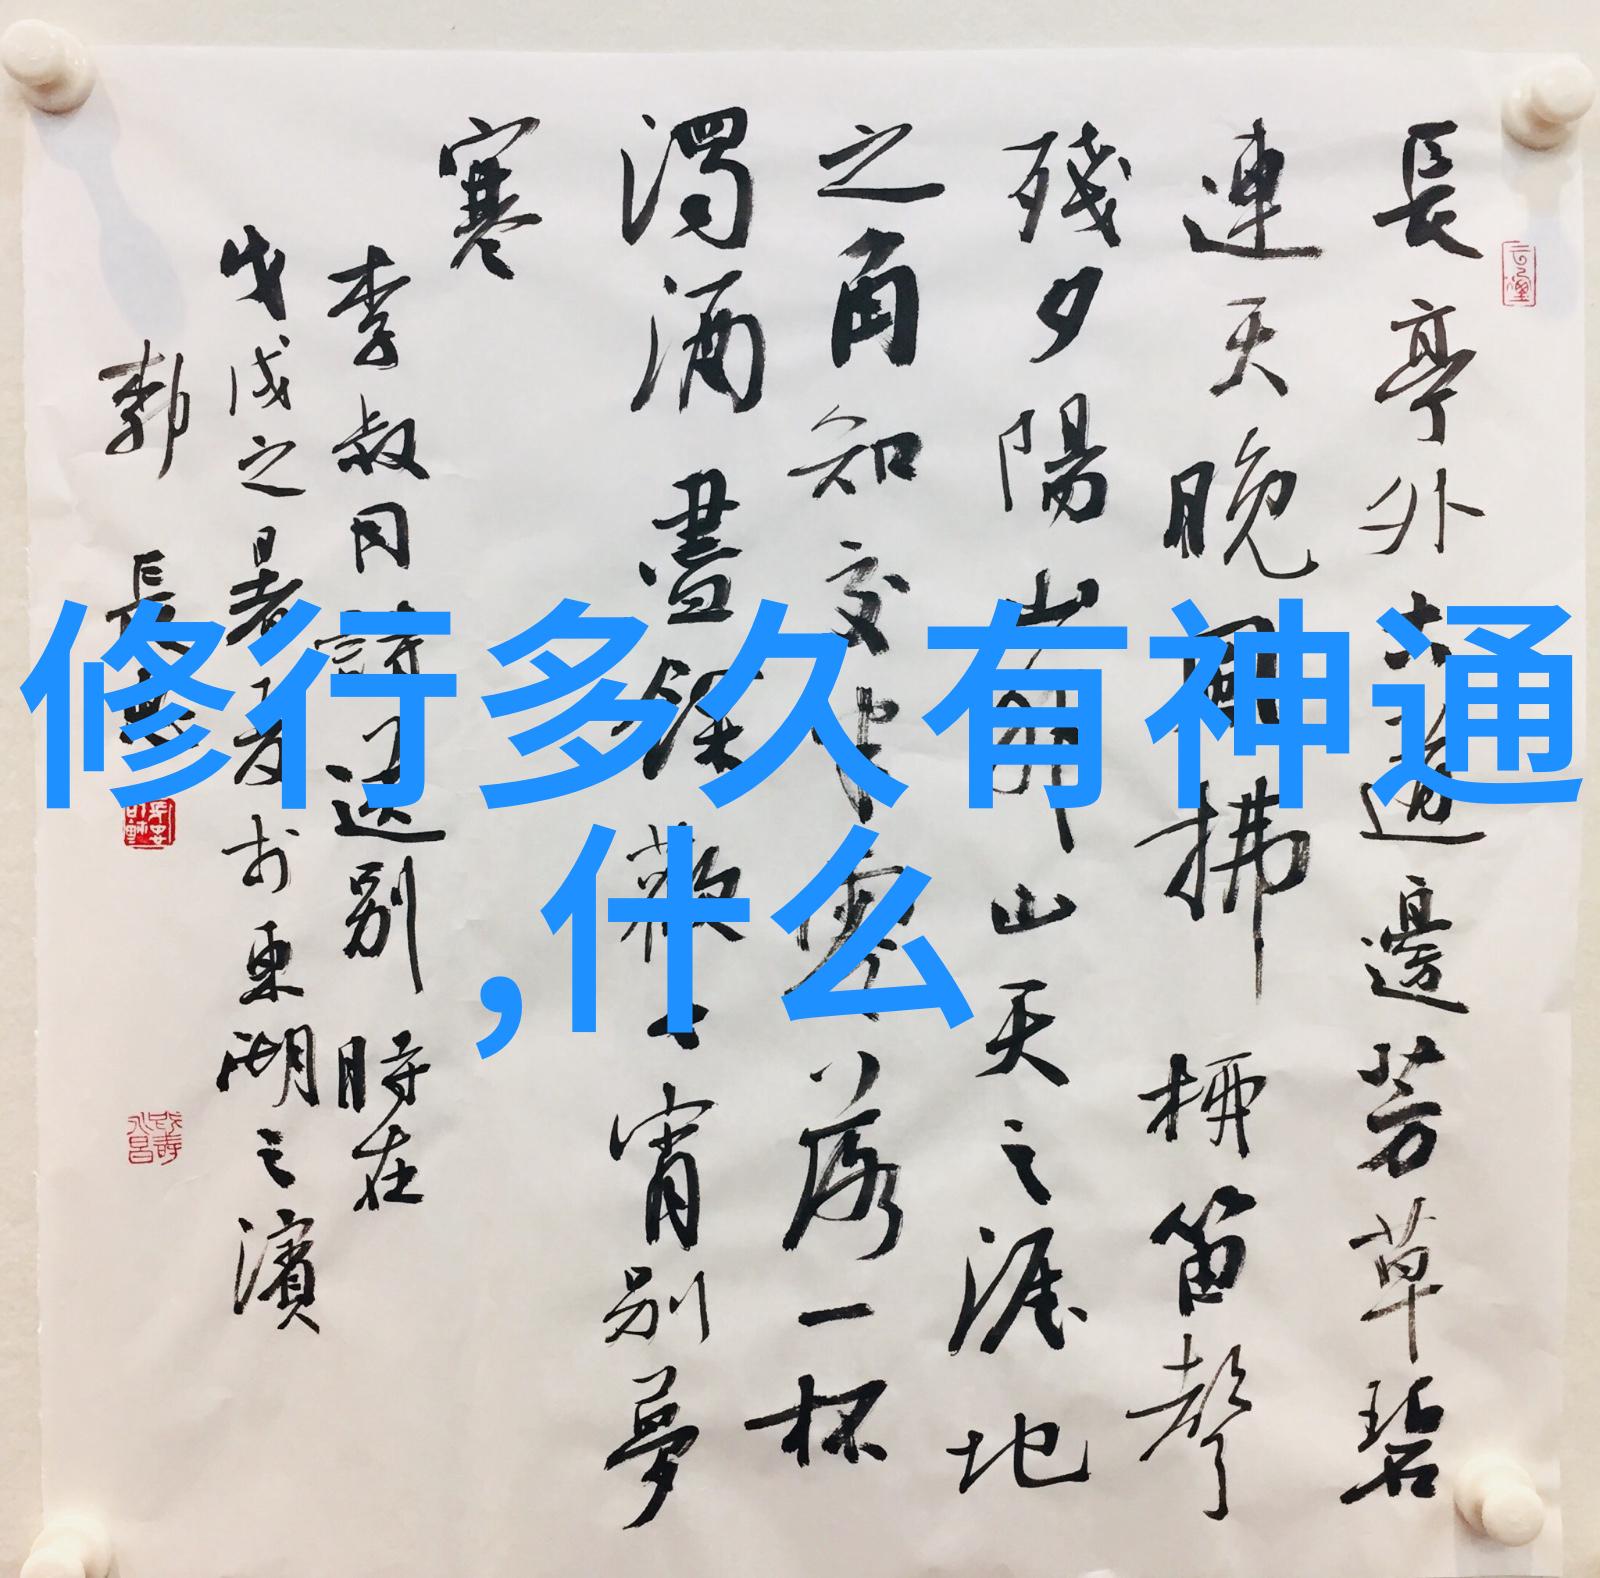 長亭外古道邊芳草碧
連天晚風拂柳笛聲
殘夕陽山外山天之涯地
之角知交半零落一杯
濁酒盡餘歡今宵別夢
寒
李叔同詩送別 時在
戊戌之暑月於東湖之濱
郭 長
修行多久有神通
,什么